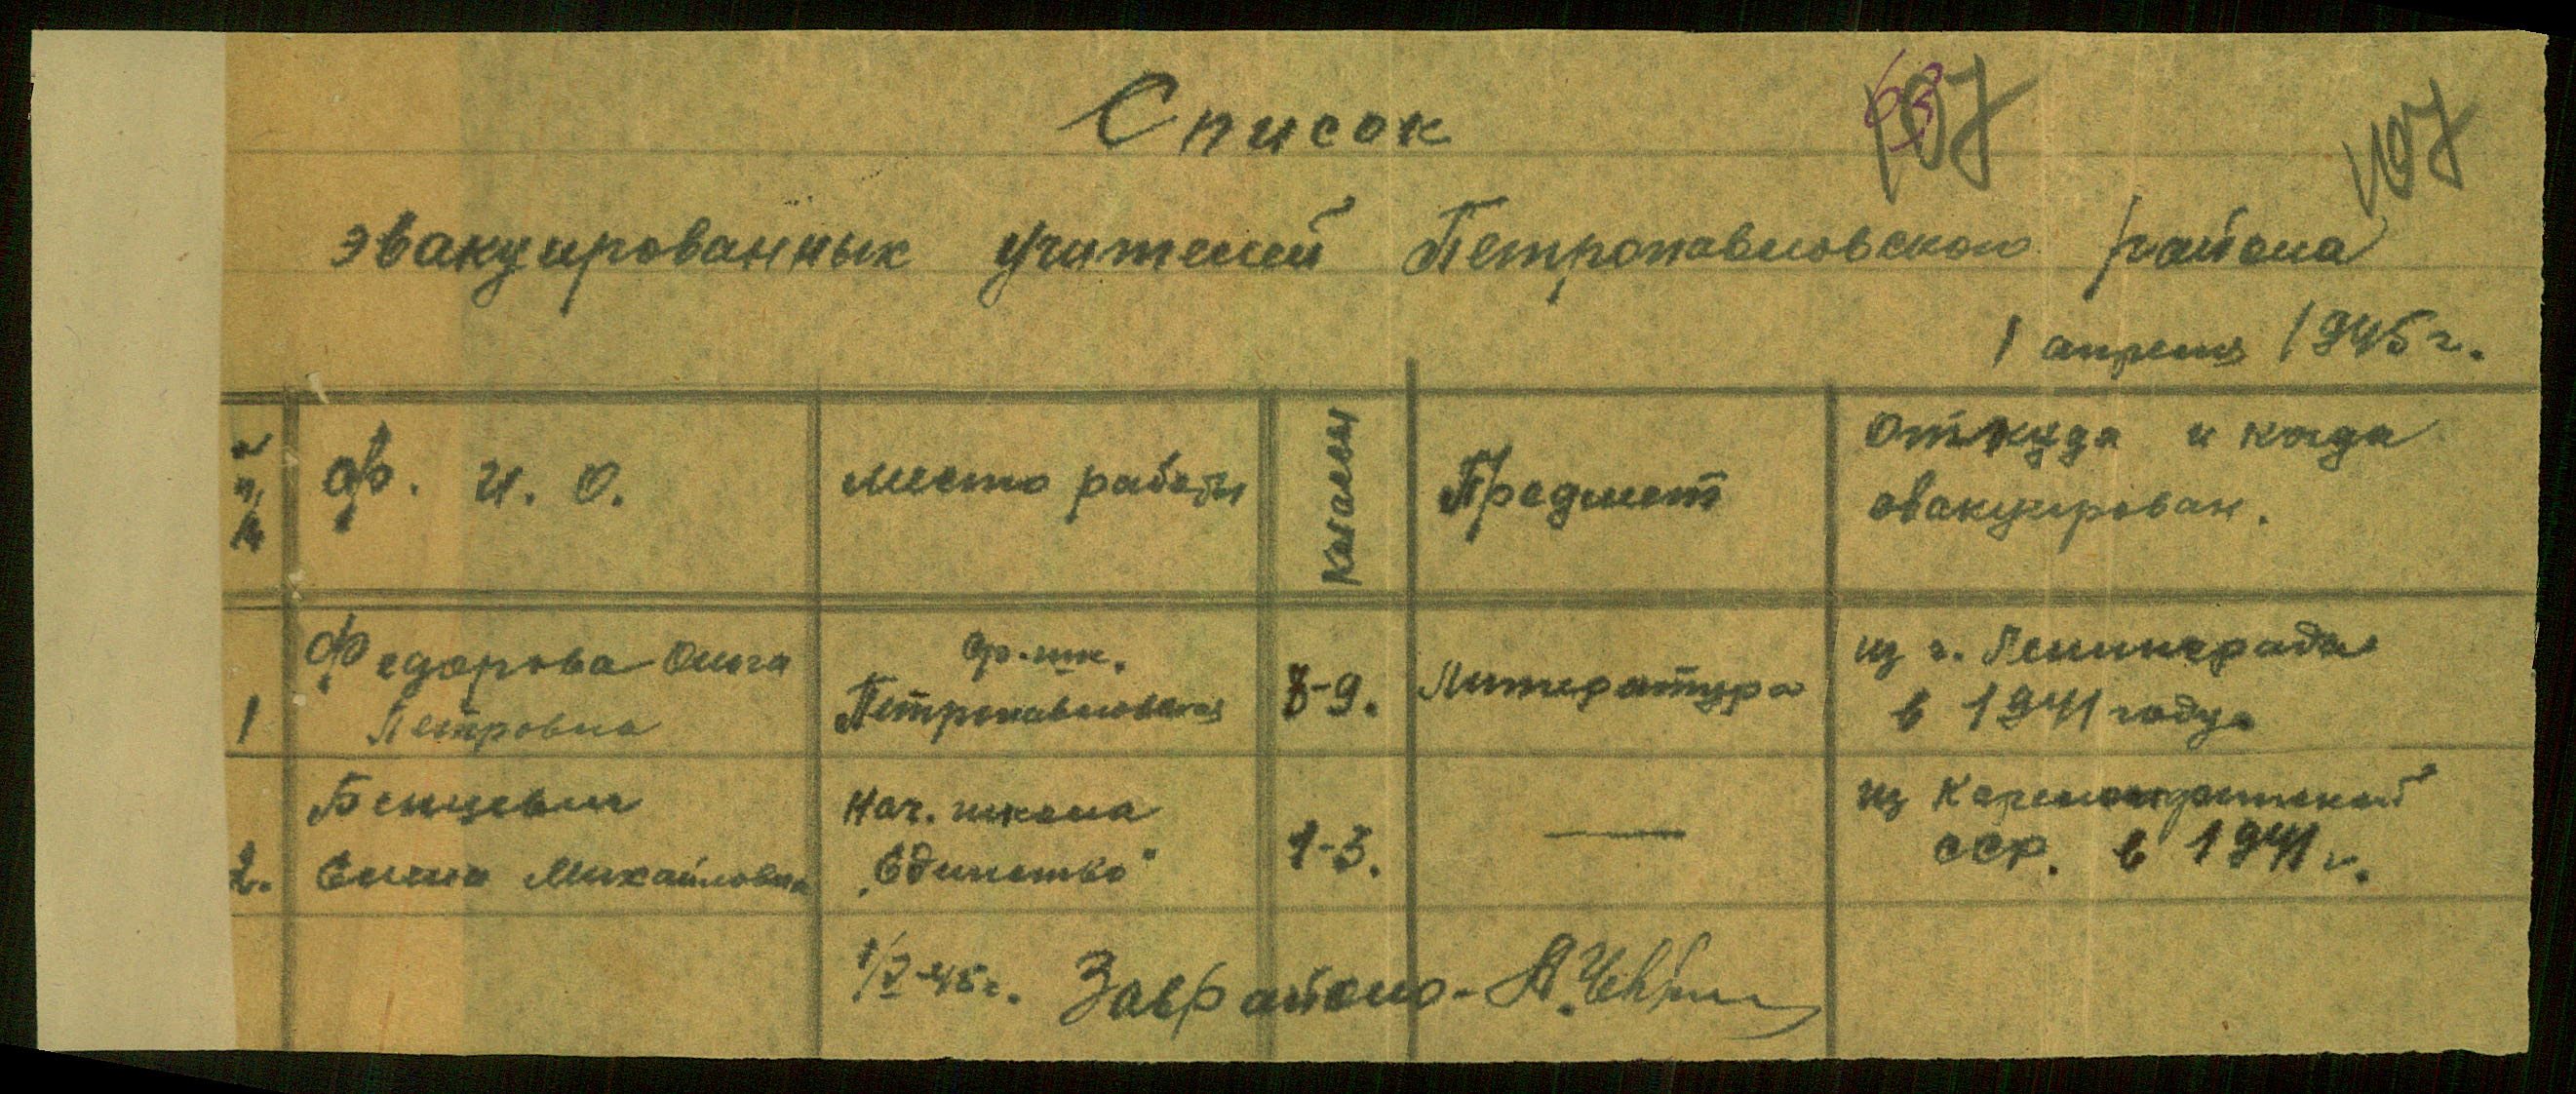 Список
63
107
107
эвакуированных учителей Петропавловского района
1 апреля 1945 г.
№ п/п
Ф. И. О.
место работы
Классы
Предмет
Откуда и когда
эвакуирован.
Федорова Ольга
Петровна
1
ср. шк.
Петропавловская
8-9.
Литература
из г. Ленинграда
в 1941 году
Бенцевич
2. Елена Михайловна
Нач. школа
„Единство"
1-3.
—
из Карело
ССР. в 1941 г.
45 г. Заврайоно - А.